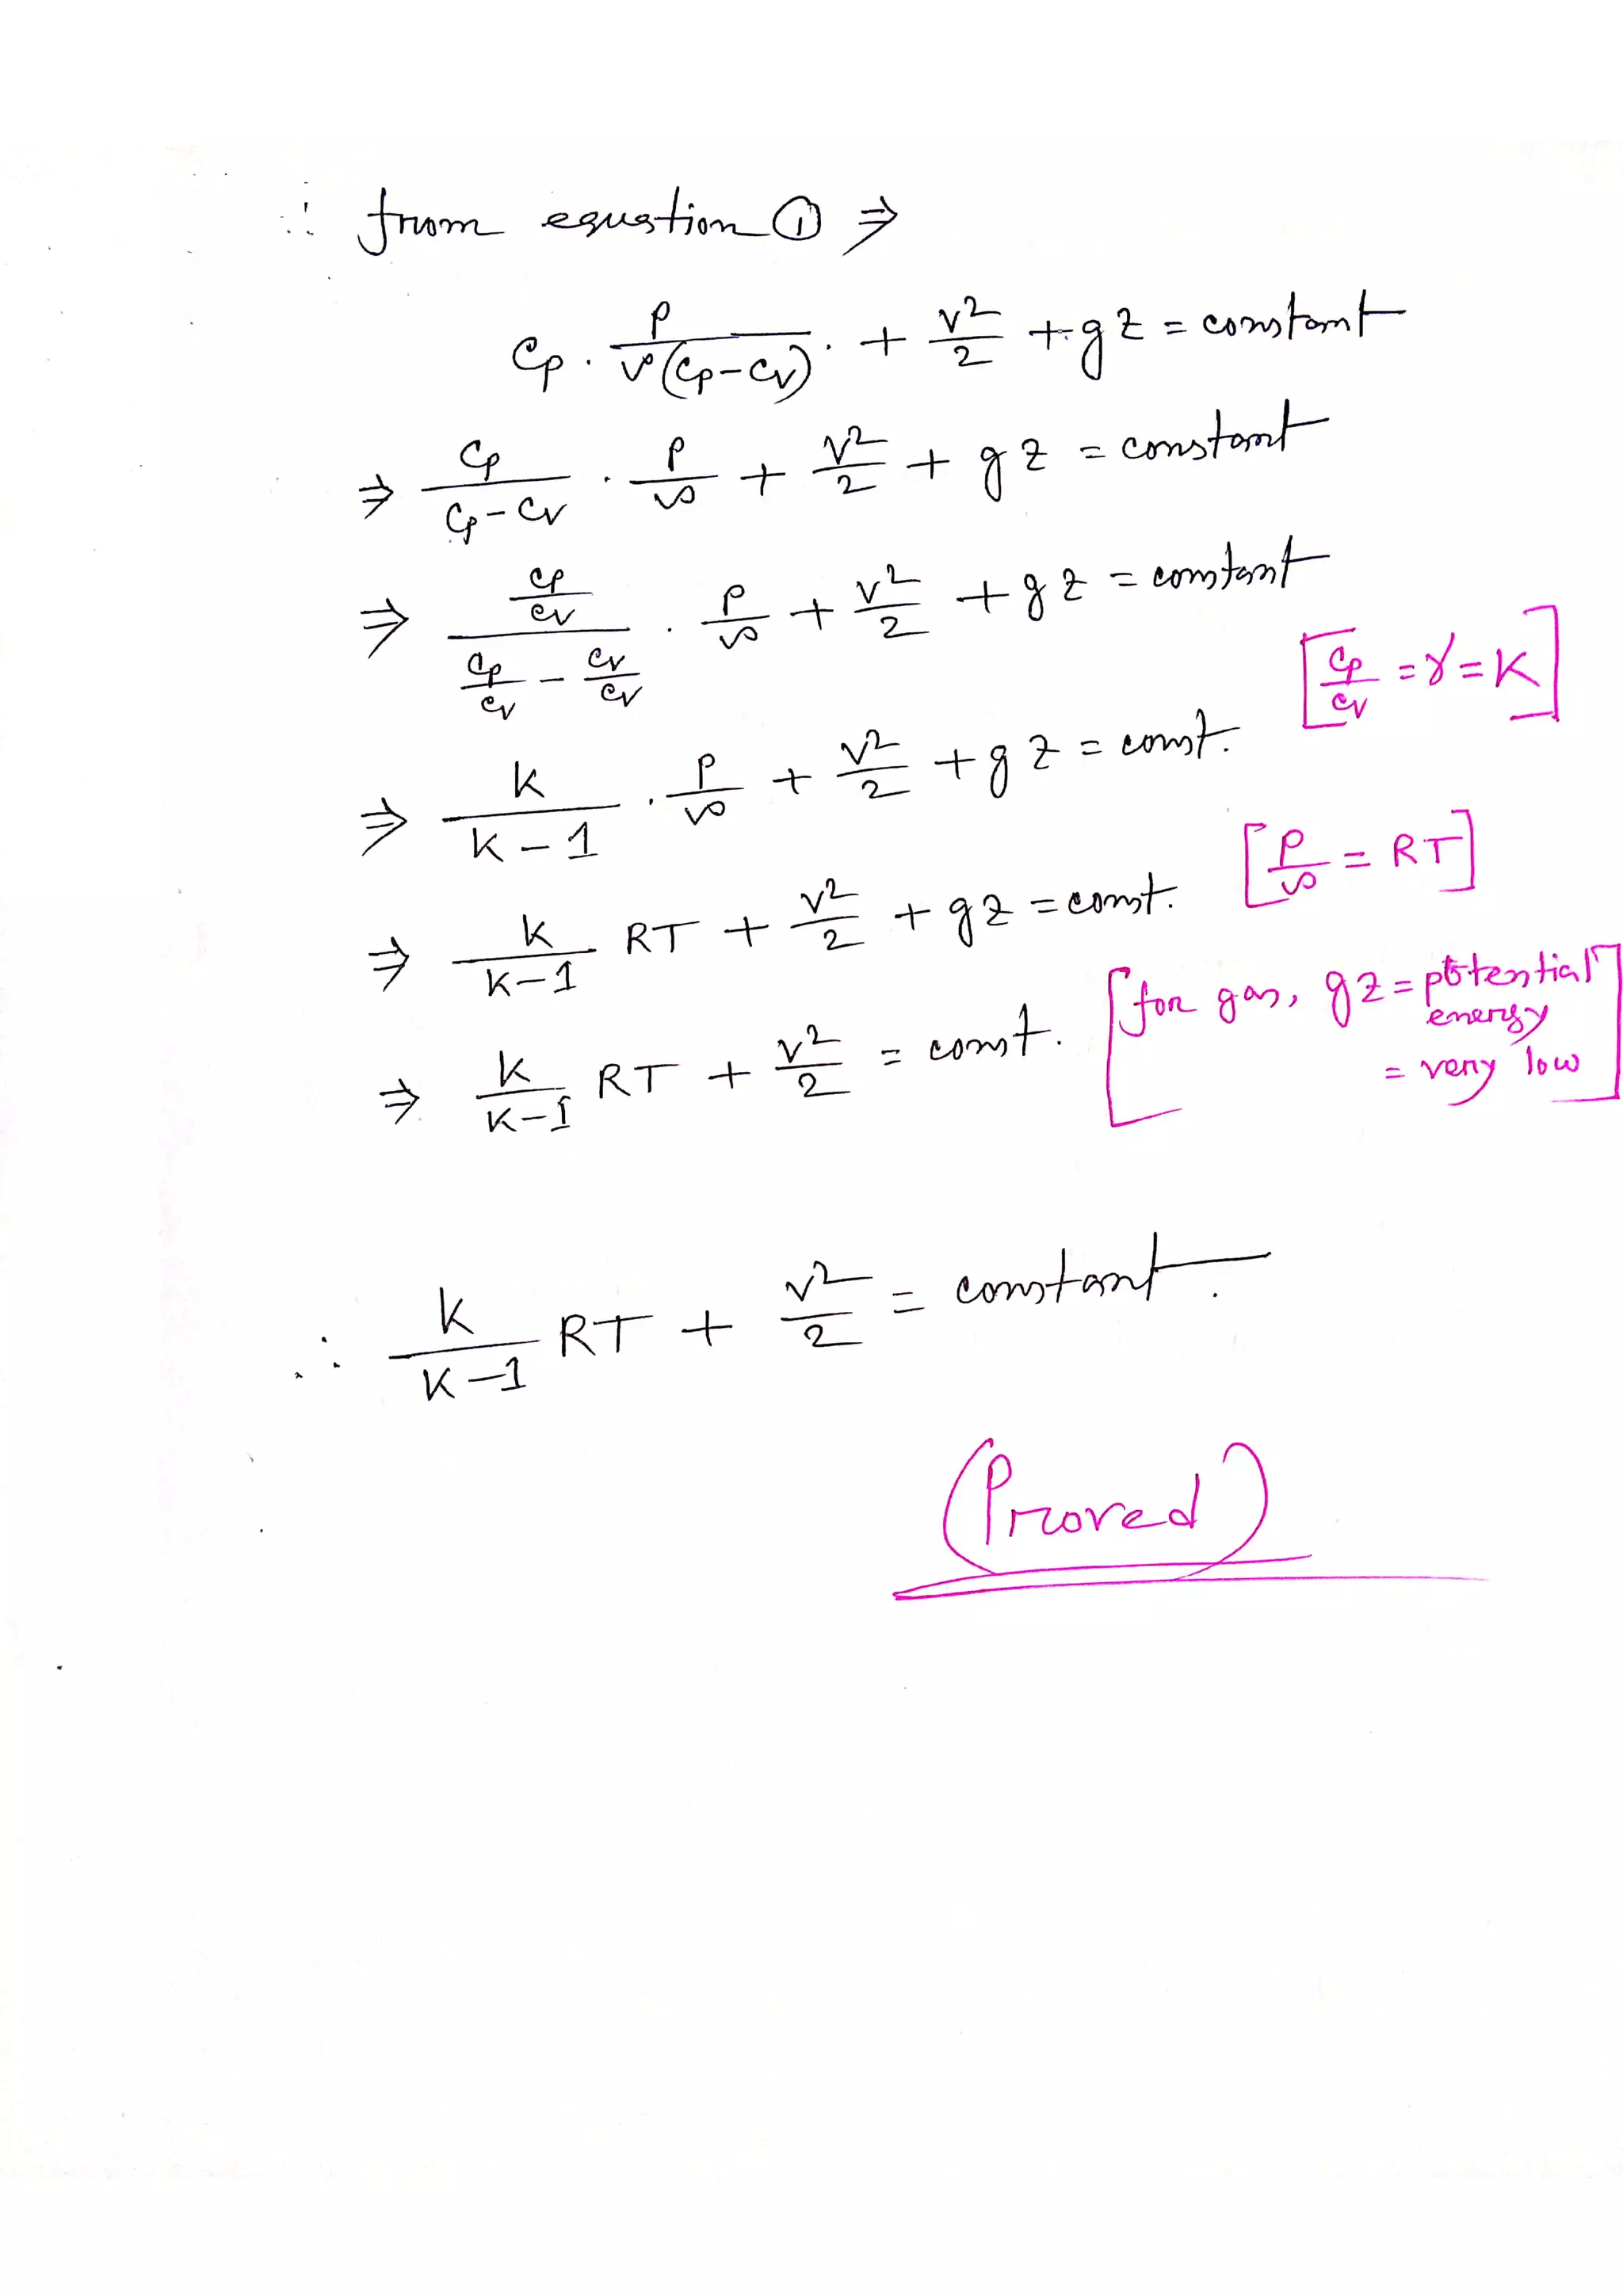 ∴ from equation ① ⇒
Cp · P/(ρ(Cp-Cv)) · + V²/2 + gz = constant
⇒ Cp/(Cp-Cv) · P/ρ + V²/2 + gz = constant
⇒ (Cp/Cv)/(Cp/Cv - Cv/Cv) · P/ρ + V²/2 + gz = constant
[Cp/Cv = γ = K]
⇒ K/(K-1) · P/ρ + V²/2 + gz = const.
[P/ρ = RT]
⇒ K/(K-1) RT + V²/2 + gz = const.
[for gas, gz = potential
energy
= very low]
⇒ K/(K-1) RT + V²/2 = const.
∴ K/(K-1) RT + V²/2 = constant.
(Proved)